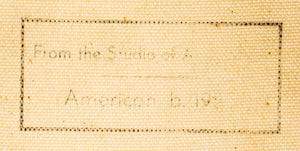 From the Studio of
American b.